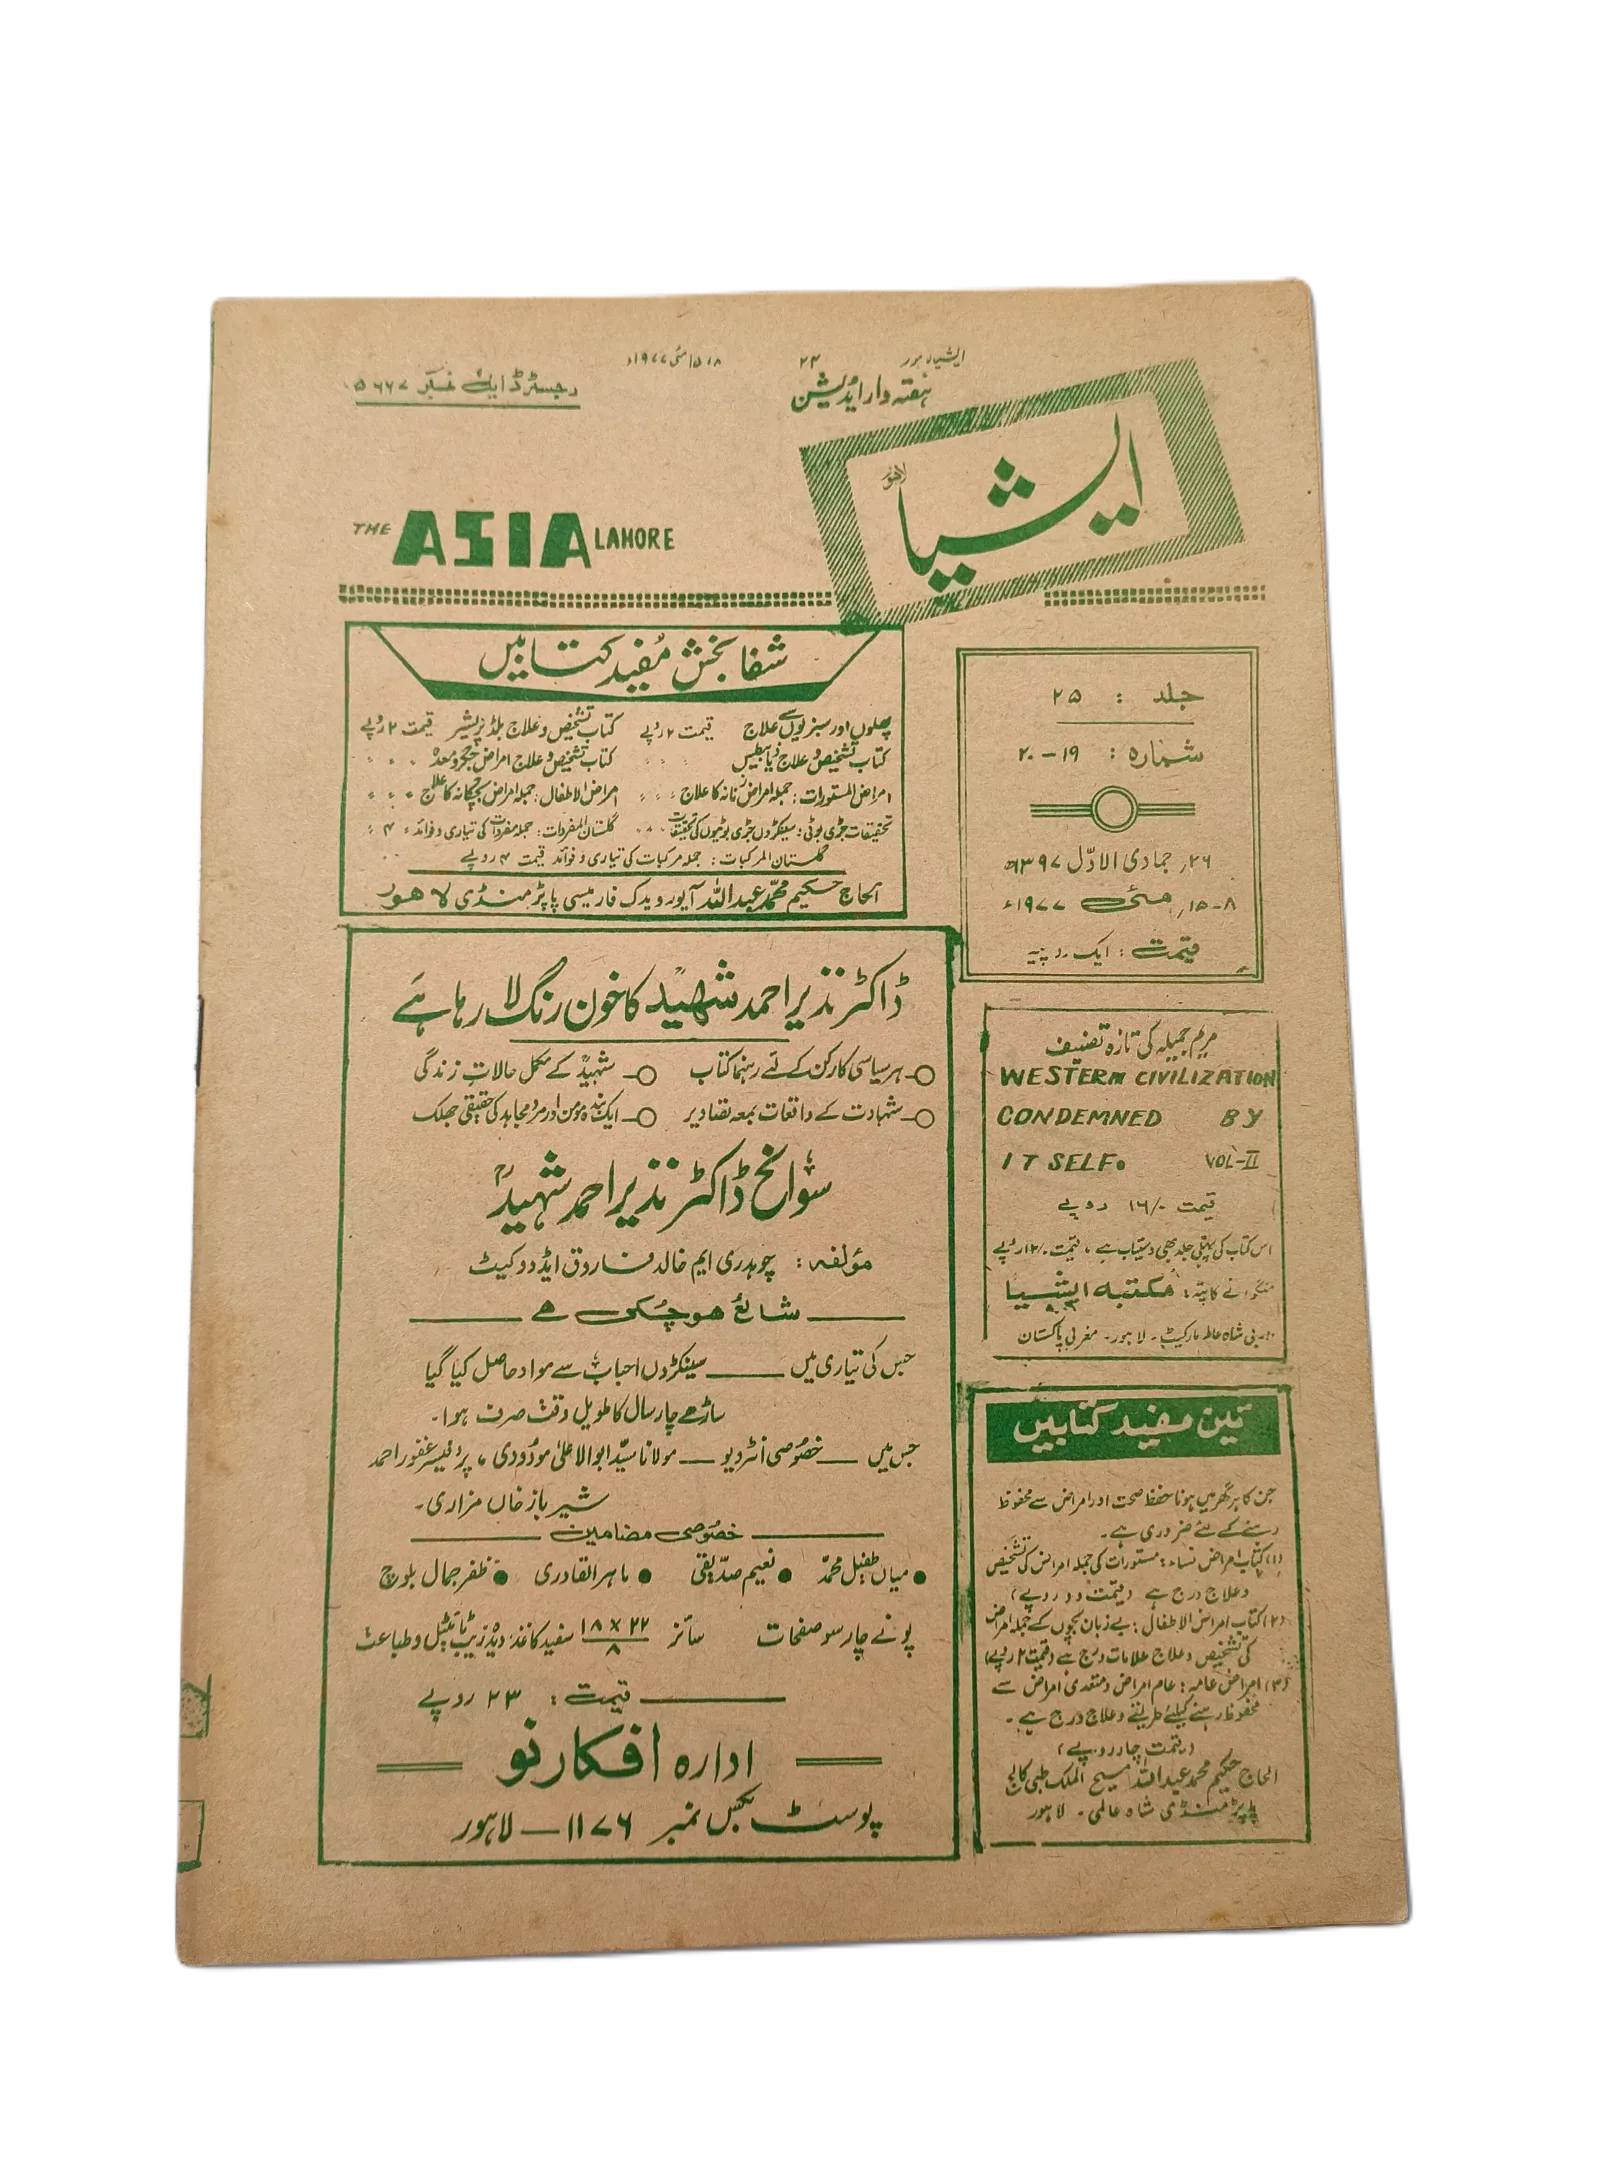 ایشیا لاہور ۲۴ ۸، ۱۵ مئی ۱۹۷۷ء
ہفتہ وار ایڈیشن
رجسٹرڈ ایل نمبر ۵۶۶۷
ایشیا
لاہور
THE ASIA LAHORE
جلد : ۲۵
شمارہ : ۱۹-۲۰
۲۶؍ جمادی الاوّل ۱۳۹۷ھ
۸-۱۵؍ مئی ۱۹۷۷ء
قیمت : ایک روپیہ
شفا بخش مفید کتابیں
پھلوں اور سبزیوں سے علاج قیمت ۲ روپے
کتاب تشخیص و علاج بلڈ پریشر قیمت ۲ روپے
کتاب تشخیص و علاج ذیابیطیس 〃 〃 〃
کتاب تشخیص و علاج امراض جگر و معدہ 〃 〃 〃
امراض المستورات : جملہ امراض زنانہ کا علاج 〃 〃 〃
امراض الاطفال : جملہ امراض بچگانہ کا علاج 〃 〃 〃
تحقیقات جڑی بوٹی : سینکڑوں جڑی بوٹیوں کی تحقیقات 〃 〃 〃
گلستان المفردات : جملہ مفردات کی تیاری و فوائد 〃 ۴ 〃
گلستان المرکبات : جملہ مرکبات کی تیاری و فوائد قیمت ۴ روپے
الحاج حکیم محمد عبداللہ آیورویدک فارمیسی پاپڑ منڈی لاہور
ڈاکٹر نذیر احمد شہیدؒ کا خون رنگ لا رہا ہے
ہر سیاسی کارکن کے لئے رہنما کتاب
شہیدؒ کے مکمل حالات زندگی
شہادت کے واقعات بمعہ تصاویر
ایک بندہ مومن اور مرد مجاہد کی حقیقی جھلک
سوانح ڈاکٹر نذیر احمد شہیدؒ
مؤلفہ : چوہدری ایم خالد فاروق ایڈووکیٹ
شائع ہو چکی ہے
جس کی تیاری میں — سینکڑوں احباب سے مواد حاصل کیا گیا
ساڑھے چار سال کا طویل وقت صرف ہوا۔
جس میں — خصوصی انٹرویو — مولانا سیّد ابوالاعلیٰ مودودی، پروفیسر غفور احمد
شیر باز خاں مزاری۔
خصوصی مضامین
● میاں طفیل محمد ● نعیم صدیقی ● ماہر القادری ● ظفر جمال بلوچ
پونے چار سو صفحات سائز ۲۲×۱۸/۸ سفید کاغذ، دیدہ زیب ٹائیٹل و طباعت
قیمت : ۲۳ روپے
ادارہ افکار نو
پوسٹ بکس نمبر ۱۱۷۶ — لاہور
مریم جمیلہ کی تازہ تصنیف
WESTERN CIVILIZATION
CONDEMNED BY
ITSELF. VOL-II
قیمت ۱۶/۰ روپے
اس کتاب کی پہلی جلد بھی دستیاب ہے، قیمت ۱۲/۰ روپے
منگوانے کا پتہ : مکتبہ ایشیا
بی شاہ عالم مارکیٹ۔ لاہور۔ مغربی پاکستان
تین مفید کتابیں
جن کا ہر گھر میں ہونا حفظ صحت اور امراض سے محفوظ
رہنے کے لئے ضروری ہے۔
(۱) کتاب امراض نساء : مستورات کی جملہ امراض کی تشخیص
و علاج درج ہے (قیمت دو روپے)
(۲) کتاب امراض الاطفال : بے زبان بچوں کے جملہ امراض
کی تشخیص و علاج علامات درج ہے (قیمت ۲ روپے)
(۳) امراض عامہ : عام امراض و متعدی امراض سے
محفوظ رہنے کیلئے طریقے و علاج درج ہے۔
(قیمت چار روپے)
الحاج حکیم محمد عبداللہ مسیح الملک طبی کالج
پاپڑ منڈی شاہ عالمی۔ لاہور